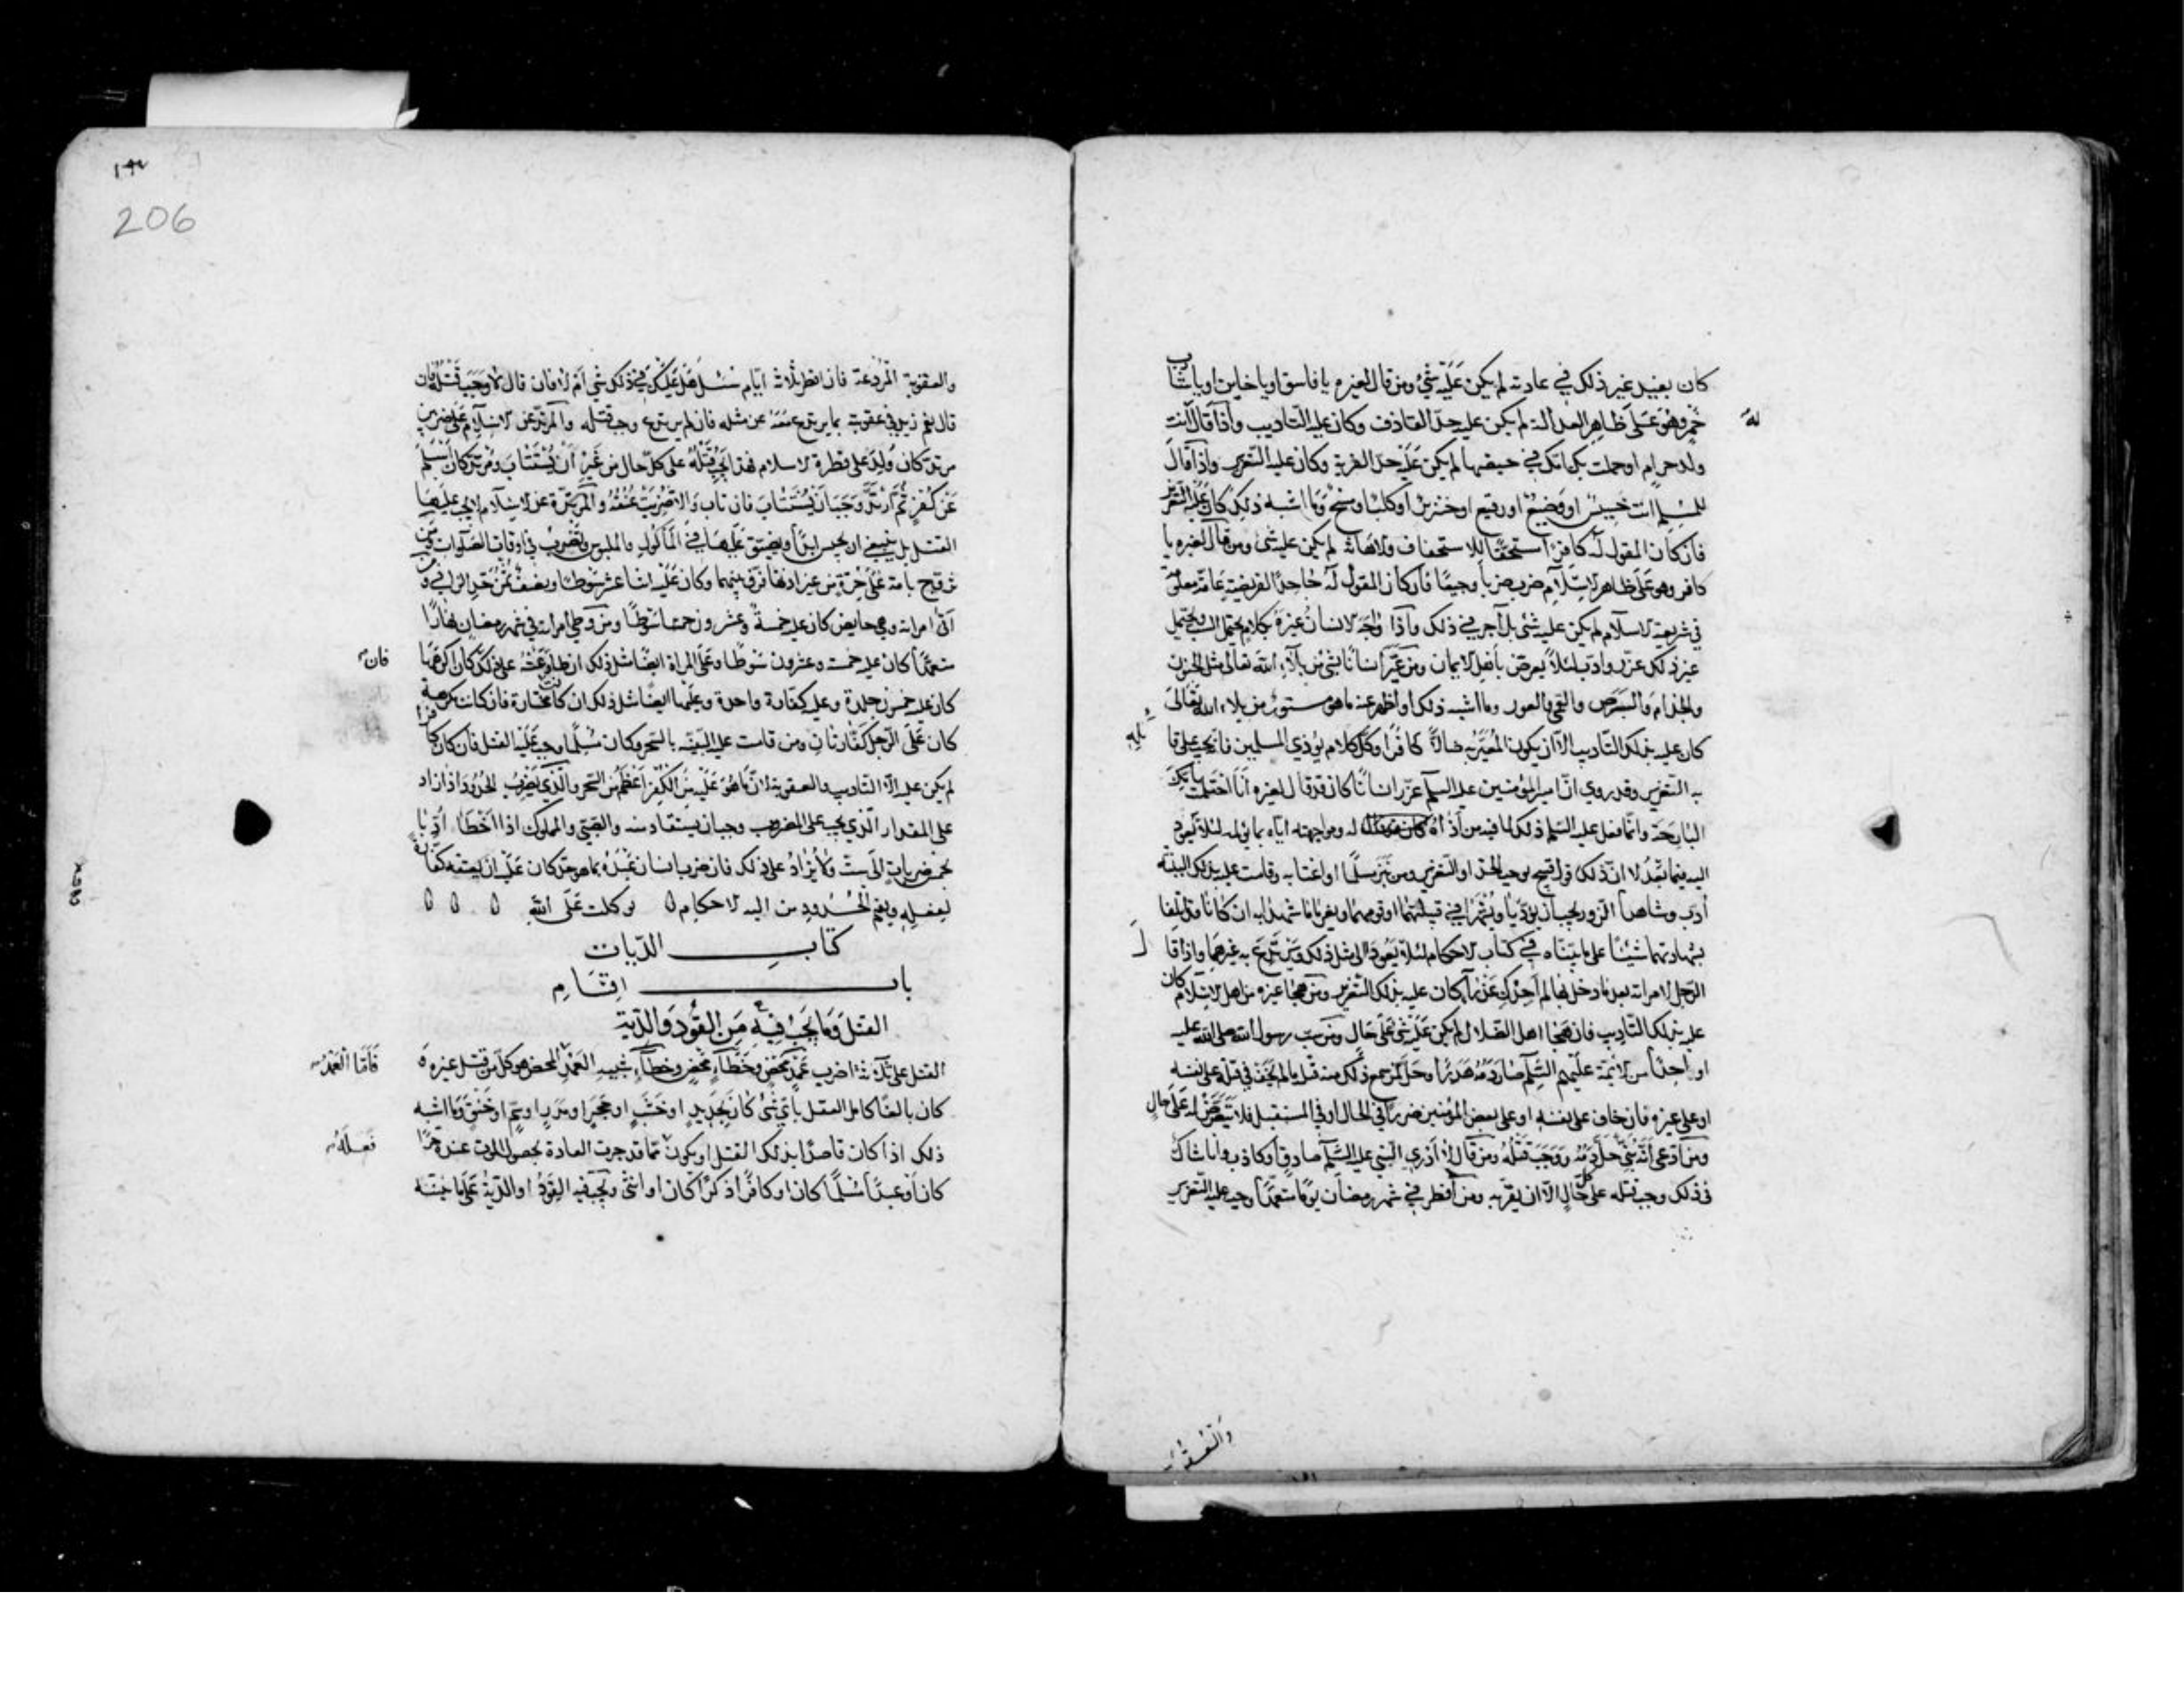 كان يفيد غير ذلك في عادته لم يكن عليه شئ ومن قال لغيره يا فاسق او يا خاين او يا شارب
خمر وهو على ظاهر العدالة لم يكن عليه حد القاذف وكان عليه التاديب واذا قال له انت
ولد حرام او حملت بك امك في حيضها لم يكن عليه حد الفرية وكان عليه التعزير واذا قال
للمسلم انت خسيس او وضيع او رقيع او خنزير او كلب او مسخ وما اشبه ذلك كان عليه التعزير
فان كان المقول له كافرا مستحقا للاستخفاف والاهانة لم يكن عليه شئ ومن قال لغيره يا
كافر وهو على ظاهر الاسلام ضرب ضربا وجيعا فان كان المقول له جاحدا لفريضة عامة معلومة
في شريعة الاسلام لم يكن عليه شئ بل آجر في ذلك واذا واجه الانسان غيره بكلام يحتمل السب ويحتمل
غير ذلك عزر وادب لئلا يعرض باهل الايمان ومن عير انسانا بشئ من بلاء الله تعالى مثل الجنون
والجذام والبرص والعمى والعور وما اشبه ذلك او اظهر عنه ما هو مستور من بلاء الله تعالى
كان عليه بذلك التاديب الا ان يكون المعير به ضالا كافرا وكل كلام يؤذي المسلمين فانه يجب على قائله
به التعزير وقد روي ان امير المؤمنين عليه السلم عزر انسانا كان قد قال لغيره انا احتلمت بامك
البارحة وانما فعل عليه السلم ذلك لما فيه من اذاه له ومواجهته اياه بما يؤلمه لئلا يعود
اليه فيما بعد لا ان ذلك قول قبيح يوجب الحد او التعزير ومن نبز مسلما او اغتابه وقامت عليه بذلك البينة
أدب وشاهدا الزور يجب ان يؤدبا ويشهرا في قبيلتهما او قومهما ويغرما ما شهدا به ان كانا قد اتلفا
بشهادتهما شيئا على ما بيناه في كتاب الاحكام لئلا يعودا الى مثل ذلك ويرتدع به غيرهما واذا قال
الرجل لامراته بعد ما دخل بها لم اجدك عذراء كان عليه بذلك التعزير ومن هجا غيره من اهل الاسلام كان
عليه بذلك التاديب فان هجا اهل الضلال لم يكن عليه شئ على حال ومن سب رسول الله صلى الله عليه
او احدا من الائمة عليهم السلم صار دمه هدرا وحل لمن سمع ذلك منه قتله ما لم يخف في قتله على نفسه
او على غيره فان خاف على نفسه او على بعض المؤمنين ضررا في الحال او في المستقبل فلا يتعرض له على حال
ومن ادعى انه نبي حل دمه ووجب قتله ومن قال لا ادري النبي عليه السلم صادق او كاذب وانا شاك
في ذلك وجب قتله على كل حال الا ان يقر به ومن افطر في شهر رمضان يوما متعمدا وجب عليه التعزير
206
والعقوبة المردعة فان افطر ثلاثة ايام سئل هل عليك في ذلك شئ ام لا فان قال لا وجب قتله فان
قال نعم زيد في عقوبته بما يرتدع معه عن مثله فان لم يرتدع وجب قتله والمرتد عن الاسلام على ضربين
مرتد كان ولد على فطرة الاسلام فهذا يجب قتله على كل حال من غير ان يستتاب ومرتد كان اسلم
عن كفر ثم ارتد وجب ان يستتاب فان تاب والا ضربت عنقه والمرتدة عن الاسلام لا يجب عليها
القتل بل ينبغي ان تحبس ابدا ويضيق عليها في المأكول والملبوس وتضرب في اوقات الصلوات ومن
تزوج بامة على حرة من غير اذنها فرق بينهما وكان عليه اثنا عشر سوطا ونصف ثمن حد الزاني ومن
اتى امراته وهي حايض كان عليه خمسة وعشرون سوطا ومن وطي امراته في شهر رمضان نهارا
متعمدا كان عليه خمسة وعشرون سوطا وعلى المراة ايضا مثل ذلك ان طاوعته على ذلك فان كان اكرهها
كان عليه خمسون جلدة وعليه كفارة واحدة وعليها ايضا مثل ذلك ان كانت مختارة فان كانت مكرهة
كان على الرجل كفارتان ومن قامت عليه البينة بالسحر وكان مسلما وجب عليه القتل فان كان كافرا
لم يكن عليه الا التاديب والعقوبة لان ما هو عليه من الكفر اعظم من السحر والذي يضرب الحدود اذا زاد
على المقدار الذي يجب على المضروب وجب ان يستقاد منه والصبي والمملوك اذا اخطا ادبا
بخمس ضربات الى ست ولا يزاد على ذلك فان ضرب انسان عبده بما هو حد كان عليه ان يعتقه كفارة
لفعله ويقيم الحدود من اليه الاحكام توكلت على الله
كتاب الديات
باب اقسام
القتل وما يجب فيه من القود والدية
القتل على ثلاثة اضرب عمد محض وخطاء محض وخطاء شبيه العمد فاما العمد المحض هو كل من قتل غيره و
كان بالغا كامل العقل باي شئ كان بحديد او خشب او حجر او مدر او سم او خنق وما اشبه
ذلك اذا كان قاصدا بذلك القتل او يكون مما قد جرت العادة بحصول الموت عند فعله حرا
كان او عبدا مسلما كان او كافرا ذكرا كان او انثى ويجب فيه القود او الدية على ما نبينه